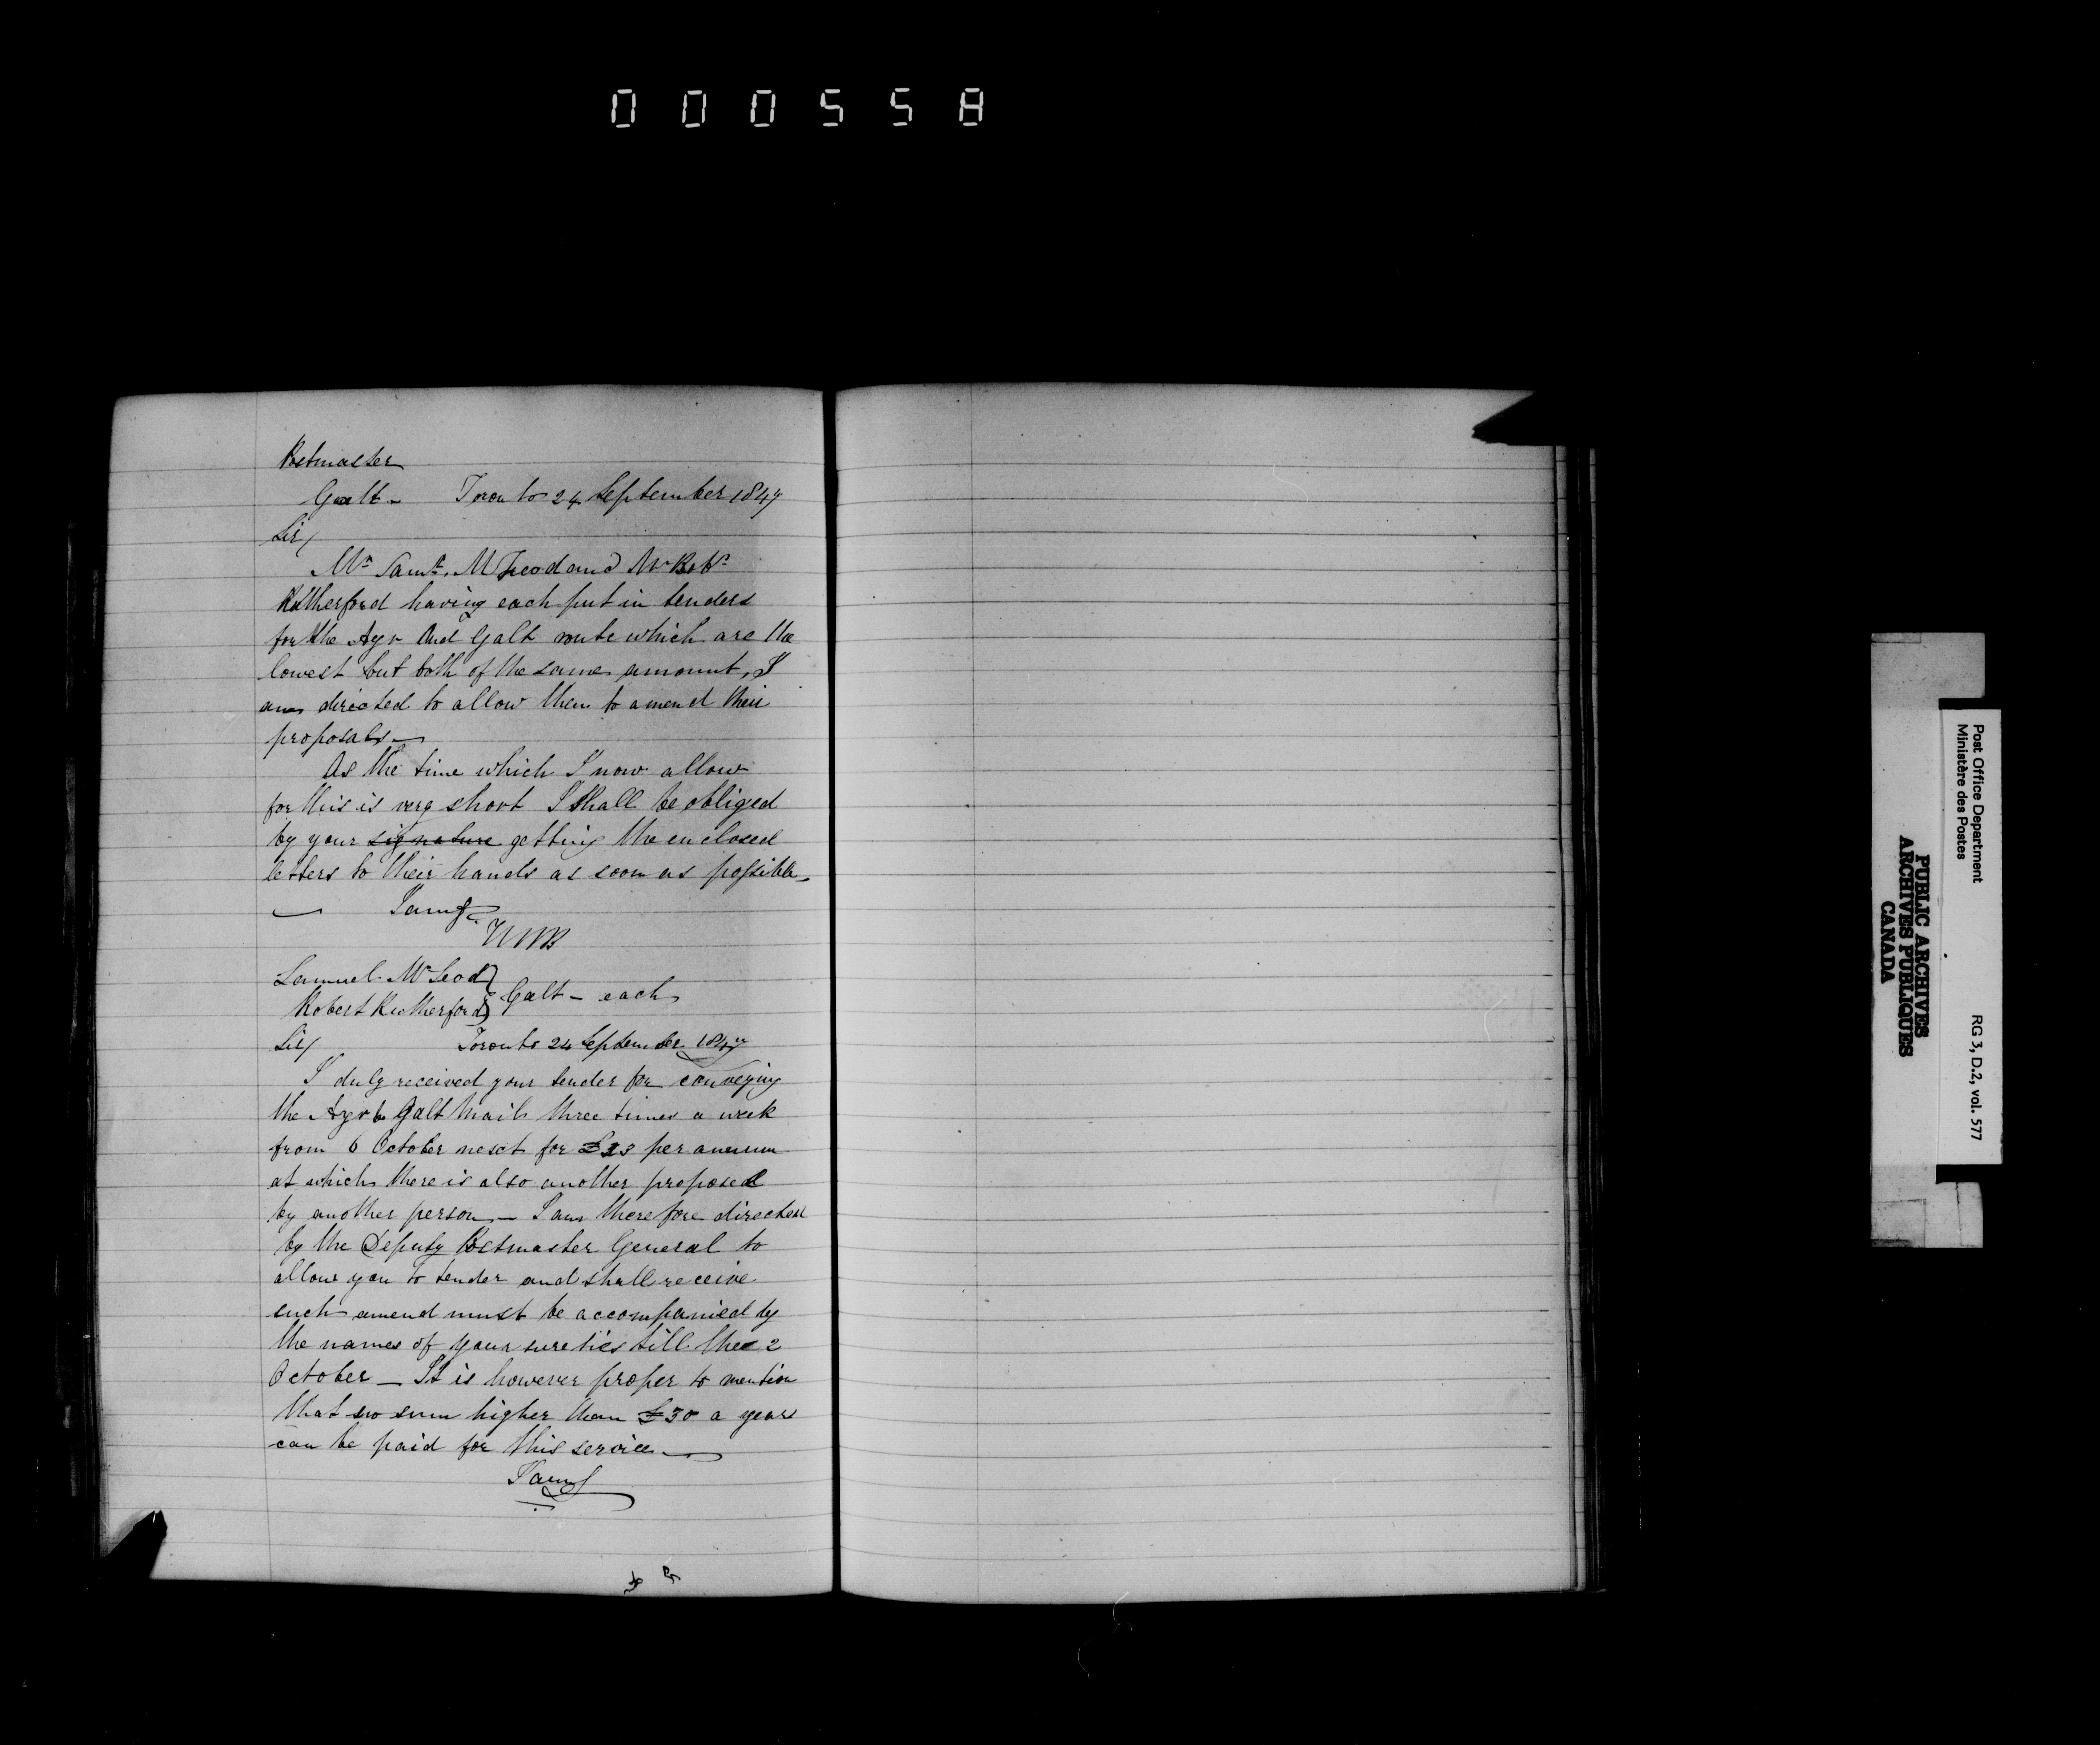 000558
Postmaster
Galt - Toronto 24 September 1847
Sir/
Mr Saml. McLeod and Mr Robt
Rutherford having each put in tenders
for the Ayr and Galt route which are the
lowest but both of the same amount, I
am directed to allow them to amend their
proposals —
As the time which I now allow
for this is very short I shall be obliged
by your signature getting the enclosed
letters to their hands as soon as possible —
— I am &c
Samuel McLeod
Robert Rutherford } Galt - each
Sir/ Toronto 24 September 1847
I duly received your tender for conveying
the Ayr to Galt Mail three times a week
from 6 October next for £33 per annum
at which there is also another proposed
by another person — I am therefore directed
by the Deputy Postmaster General to
allow you to tender and shall receive
such amend must be accompanied by
the names of your sureties till the 2
October — It is however proper to mention
that no sum higher than £30 a year
can be paid for this service —
I am &c
Post Office Department
Ministère des Postes
RG 3, D.2, vol. 577
PUBLIC ARCHIVES
ARCHIVES PUBLIQUES
CANADA